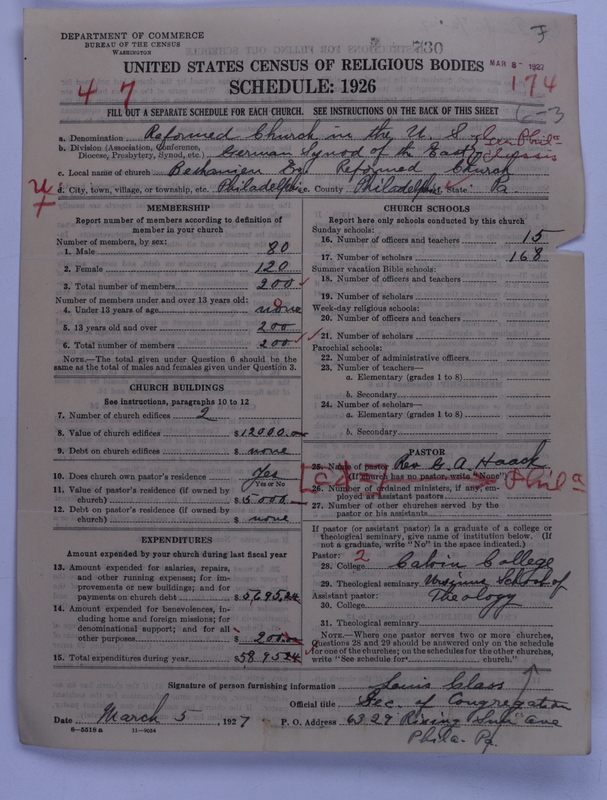 DEPARTMENT OF COMMERCE
BUREAU OF THE CENSUS
WASHINGTON
730
MAR 8 - 1927
UNITED STATES CENSUS OF RELIGIOUS BODIES
SCHEDULE: 1926
174
4 7
FILL OUT A SEPARATE SCHEDULE FOR EACH CHURCH. SEE INSTRUCTIONS ON THE BACK OF THIS SHEET
a. Denomination Reformed Church in the U. S.
b. Division (Association, Conference,
Diocese, Presbytery, Synod, etc.) German Synod of the East
c. Local name of church Bethanien Ev. Reformed Church
d. City, town, village, or township, etc. Philadelphia County Philadelphia State Pa
MEMBERSHIP
Report number of members according to definition of
member in your church
Number of members, by sex:
1. Male 80
2. Female 120
3. Total number of members 200
Number of members under and over 13 years old:
4. Under 13 years of age none
5. 13 years old and over 200
6. Total number of members 200
NOTE.—The total given under Question 6 should be the
same as the total of males and females given under Question 3.
CHURCH BUILDINGS
See instructions, paragraphs 10 to 12
7. Number of church edifices 2
8. Value of church edifices $ 12000.00
9. Debt on church edifices $ none
10. Does church own pastor's residence Yes
Yes or No
11. Value of pastor's residence (if owned by
church) $ 5000
12. Debt on pastor's residence (if owned by
church) $ none
EXPENDITURES
Amount expended by your church during last fiscal year
13. Amount expended for salaries, repairs,
and other running expenses; for im-
provements or new buildings; and for
payments on church debt $ 5,695.24
14. Amount expended for benevolences, in-
cluding home and foreign missions; for
denominational support; and for all
other purposes $ 200.00
15. Total expenditures during year $ 5895.24
CHURCH SCHOOLS
Report here only schools conducted by this church
Sunday schools:
16. Number of officers and teachers 15
17. Number of scholars 168
Summer vacation Bible schools:
18. Number of officers and teachers
19. Number of scholars
Week-day religious schools:
20. Number of officers and teachers
21. Number of scholars
Parochial schools:
22. Number of administrative officers
23. Number of teachers—
a. Elementary (grades 1 to 8)
b. Secondary
24. Number of scholars—
a. Elementary (grades 1 to 8)
b. Secondary
PASTOR
25. Name of pastor Rev. G. A. Haack
(If church has no pastor, write "None")
26. Number of ordained ministers, if any, em-
ployed as assistant pastors
Phila
27. Number of other churches served by the
pastor or his assistants
If pastor (or assistant pastor) is a graduate of a college or
theological seminary, give name of institution below. (If
not a graduate, write "No" in the space indicated.)
Pastor: 2
28. College Calvin College
29. Theological seminary Ursinus School of
Assistant pastor: Theology
30. College
31. Theological seminary
NOTE.—Where one pastor serves two or more churches,
Questions 28 and 29 should be answered only on the schedule
for one of the churches; on the schedules for the other churches,
write "See schedule for church."
Signature of person furnishing information Louis Class
Official title Sec. of Congregation
Date March 5, 1927 P. O. Address 6329 Rising Sun ave
8-5518 a 11-9054
Phila. Pa.